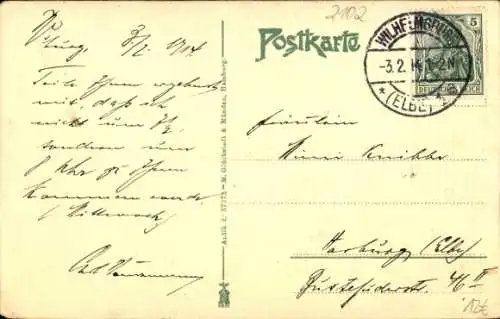 2102
Postkarte
WILHELMSBURG
-3.2.14.1-2N
* (ELBE) 1 a
5
DEUTSCHES REICH
W'burg, 3/2. 1914
Teile Ihnen
mit, daß ich
nicht um 7½
sondern um
8 Uhr zu Ihnen
kommen werde
(Mittwoch)
M. Glückstadt & Münden, Hamburg.
Fräulein
Mimi Knibbe
Harburg (Elbe)
Buxtehuderstr. 46 II